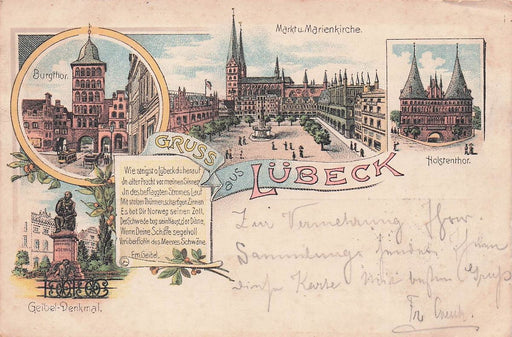 Burgthor.
Markt u. Marienkirche.
Holstenthor.
GRUSS
aus
LÜBECK
Wie steigst o Lübeck du herauf
In alter Pracht vor meinen Sinnen
An des beflaggten Stromes Lauf
Mit stolzen Thürmen, schart'gen Zinnen
Es bot Dir Norweg seinen Zoll,
Der Schwede bog sein Haupt, der Däne,
Wenn Deine Schiffe segelvoll
Vorüberflohn des Meeres Schwäne
Em. Geibel.
Geibel-Denkmal.
Zur Vermehrung Ihrer
Sammlung sendet Ihnen
diese Karte besten Gruß
Fr.